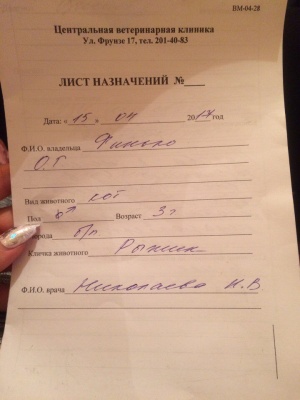 ВМ-04-28
Центральная ветеринарная клиника
Ул. Фрунзе 17, тел. 201-40-83
ЛИСТ НАЗНАЧЕНИЙ №____
Дата: « 15 » 04 2017 год
Ф.И.О. владельца Финько
О.Г
Вид животного кот
Пол ♂ Возраст 3 г
порода б/п
Кличка животного Рыжик
Ф.И.О. врача Николаева Н.В